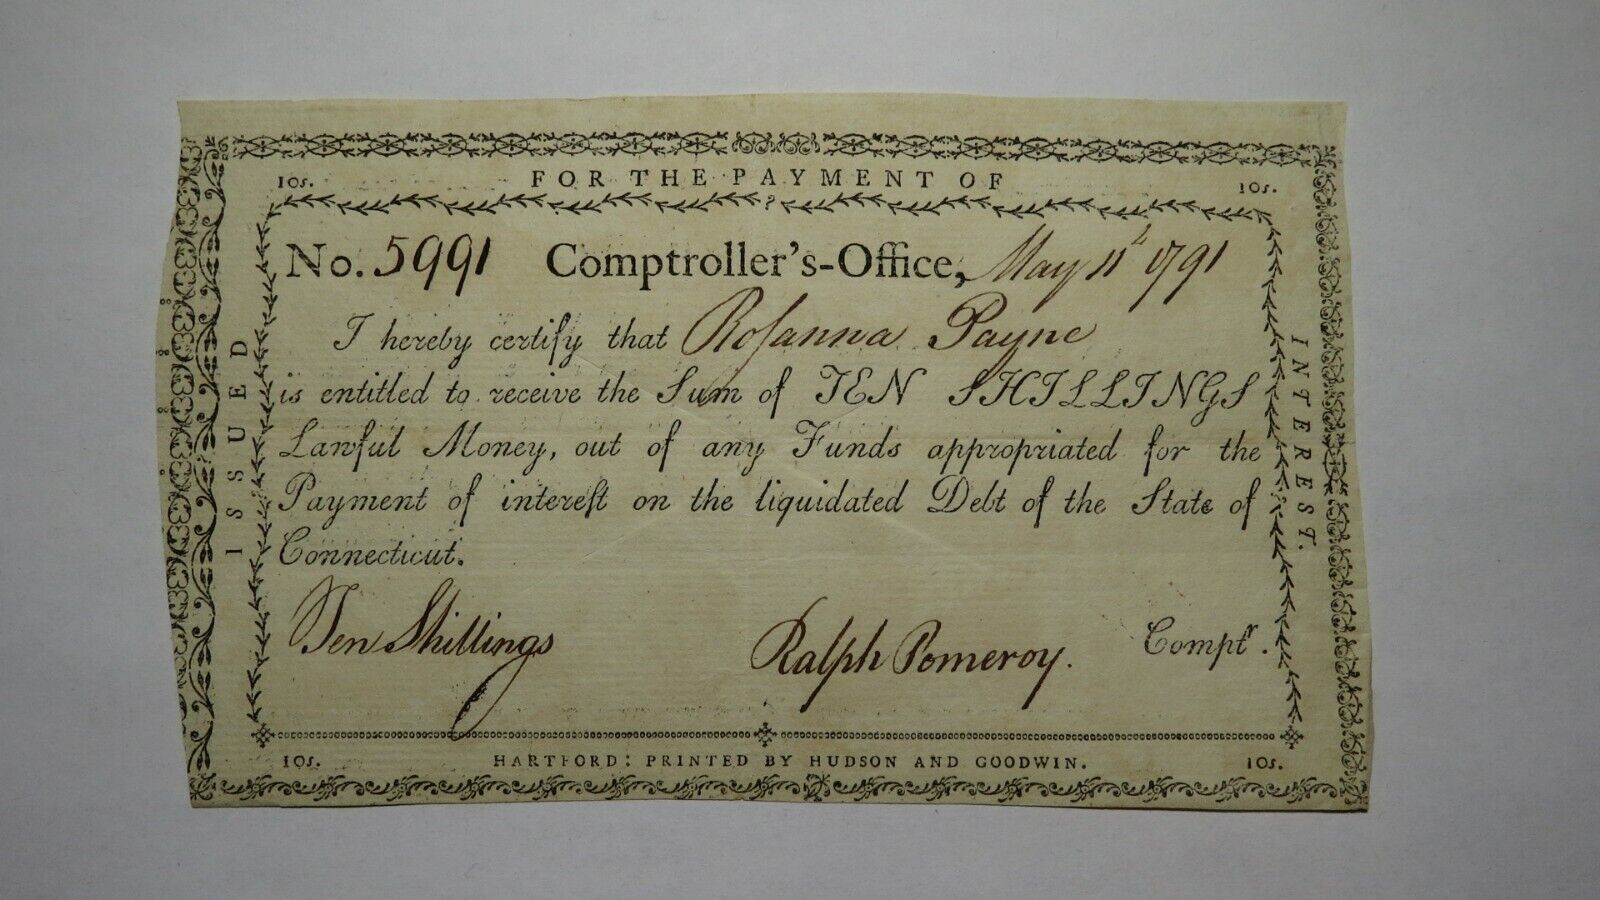 10s. FOR THE PAYMENT OF 10s.
No. 5991 Comptroller's-Office, May 11th 1791
I hereby certify that Roſanna Payne
is entitled to receive the Sum of TEN SHILLINGS
Lawful Money, out of any Funds appropriated for the
Payment of intereſt on the liquidated Debt of the State of
Connecticut.
Ten Shillings Ralph Pomeroy. Comptr.
ISSUED
INTEREST.
10s. HARTFORD: PRINTED BY HUDSON AND GOODWIN. 10s.